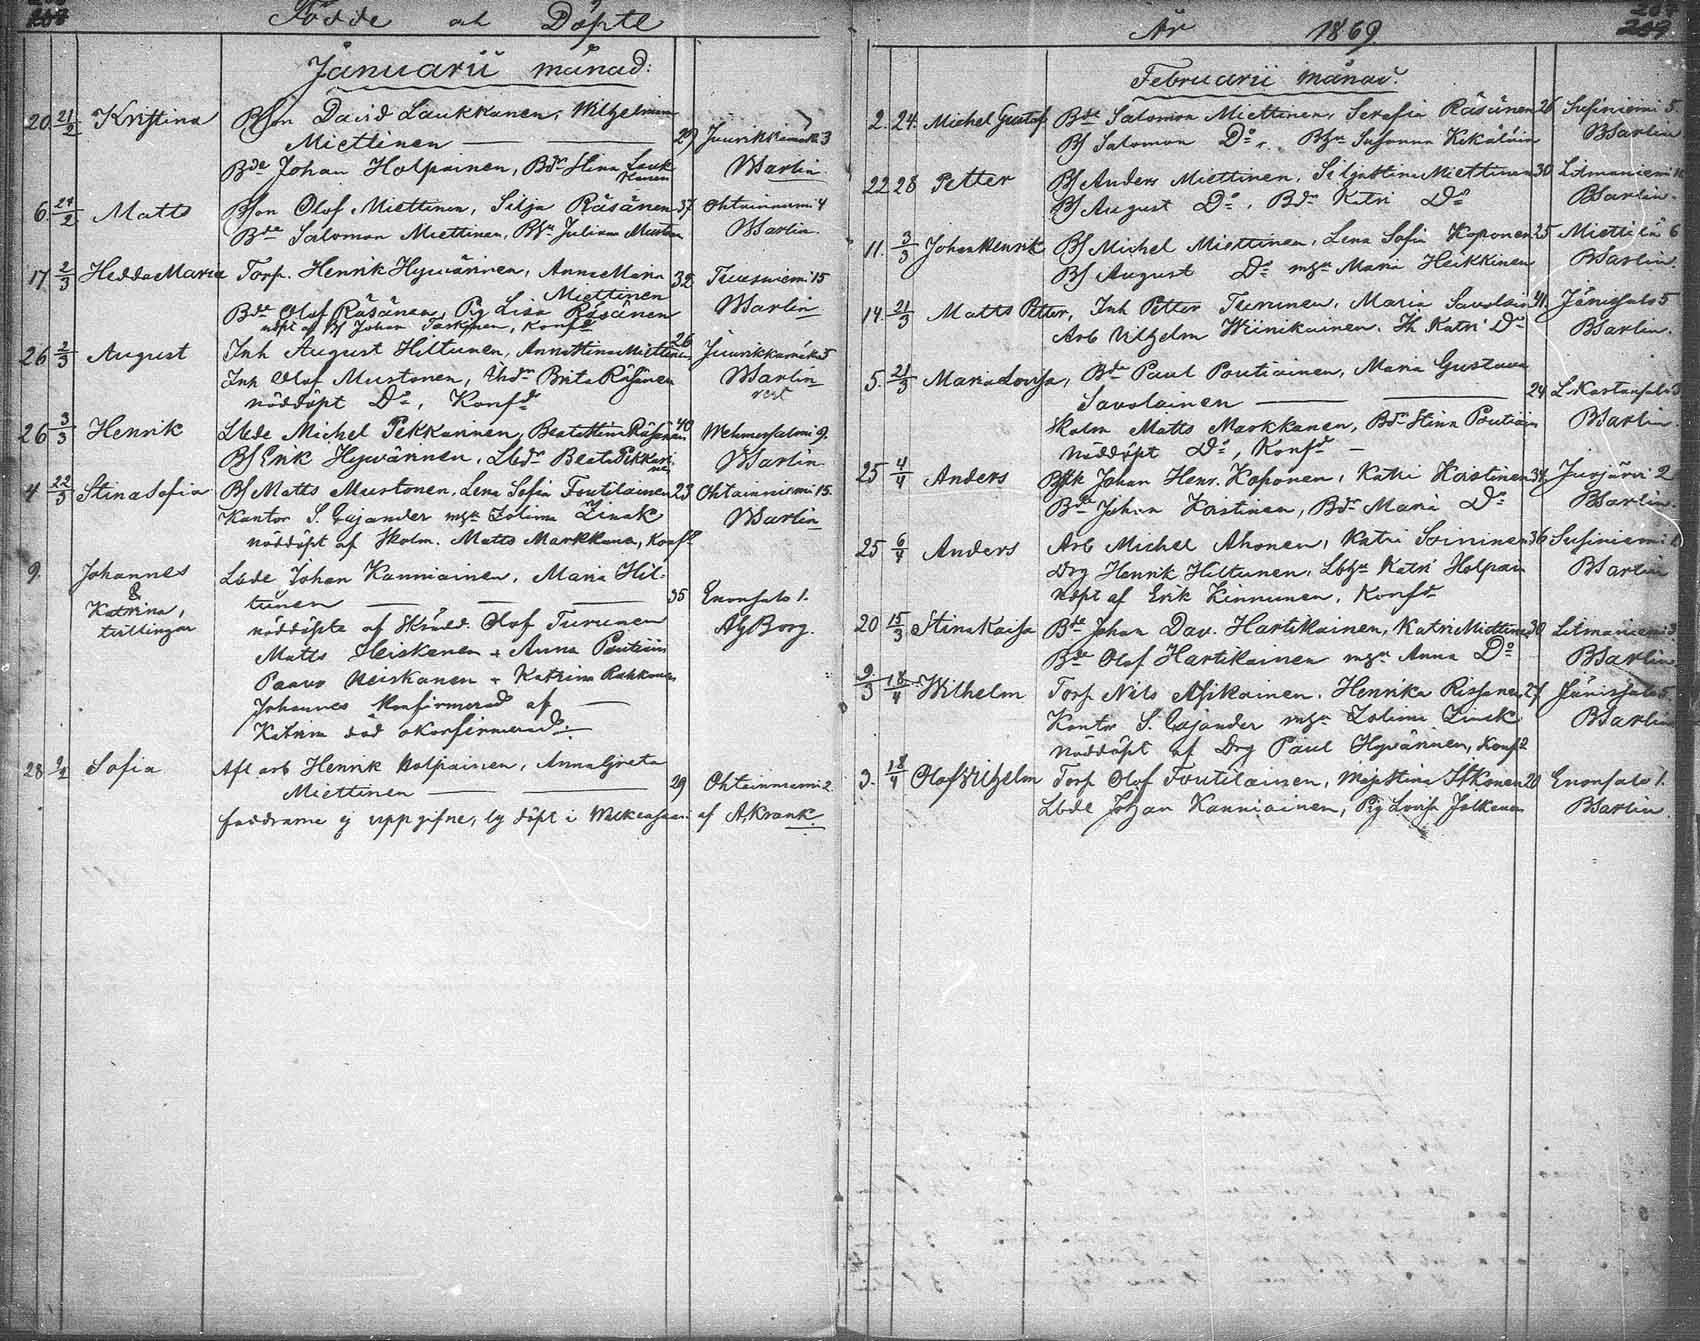 Födde och Döpte
Januarii månad:
20. 21/2 Kristina Bson David Laukkanen, Wilhelmina
Miettinen — — 29 Juurikkamäki 3
Bde Johan Holpainen, Bdr Stina Lauk-
kanen BSarlin.
6. 24/2 Matts Bson Olof Miettinen, Silja Räsänen 37 Ohtaanniemi 4
Bde Salomon Miettinen, Juliana Muston BSarlin.
17. 2/3 Hedda Maria Torp. Henrik Hyvärinen, Anna Maria 32 Tuusniemi 15
Miettinen
Bde Olof Räsänen, Pig Lisa Räsänen BSarlin
nöpt af Bf Johan Taskinen, Konfd
26 2/3 August Inh August Hiltunen, Anna Stina Miettinen 26 Juurikkamäki 5
Inh Olof Mustonen, Brita Räsänen BSarlin
nöddöpt Do, Konfd
26 3/3 Henrik Lbde Michel Pekkarinen, Beata Stina Räsänen 40 Mehmersalmi 9.
Bf Erik Hyvärinen, Lbdr Beata Pekkari-
nen BSarlin.
4 22/3 Stina Sofia Bf Matts Mustonen, Lena Sofia Toutilainen 23 Ohtaanniemi 15.
Kantor S. Cajander BSarlin
nöddöpt af Skolm. Matts Markkanen, Konfd
9. Johannes Lbde Johan Kanniainen, Maria Hil-
& tunen — — — 35 Enonsalo 1.
Katrina, nöddöpte af Olof Turunen AgBorg.
tvillingar
Matts Heiskanen + Anna Poutiain
Paavo Heiskanen + Katrina Rahkonen
Johannes Konfirmerad af —
Katrina död okonfirmerad.
28 Sofia Afl arb Henrik Holpainen, Anna Greta
Miettinen — — 29 Ohtaanniemi 2
faddrarne ej uppgifne, ty döpt i af A. Krank.
År 1869.
Februarii månad.
2. 24. Michel Gustaf Bde Salomon Miettinen, Serafia Räsänen 26 Susiniemi 5.
Bf Salomon Do, Susanna BSarlin
22 28 Petter Bf Anders Miettinen, Silja Stina Miettinen 30 Litmaniemi
Bf August Do, Bdr Katri Do BSarlin.
11. 3/3 Johan Henrik Bf Michel Miettinen, Lena Sofia Koponen 25 Miettilä 6
Bf August Do Maria Heikkinen BSarlin.
14. 21/3 Matts Petter, Inh Petter Turunen, Maria Savolain 41. Jänissalo 5
Arb Vilhelm Wäinikainen. Katri Do BSarlin.
5. 21/3 Maria Lovisa, Bde Paul Poutiainen, Maria Gustava
Savolainen — — 24
Skolm Matts Markkanen, Bdr Stina Poutiain BSarlin
nöddöpt Do, Konfd —
25 4/4 Anders Johan Henr. Koponen, Katri Kastinen 34 Jusjärvi 2
Bde Johan Kastinen, Bdr Maria Do BSarlin.
25 6/4 Anders Arb Michel Ahonen, Katri Soininen 36 Susiniemi
Drg Henrik Hiltunen, Katri Holpain BSarlin
nöpt af Erik Kinnunen, Konfd
20 15/3 Stina Kaisa Bde Johan Dav. Hartikainen, Katri Miettinen 30 Litmaniemi 3
Bde Olof Hartikainen Anna Do BSarlin
9/3 18/4 Wilhelm Torp Nils Asikainen, Henrika Rissanen 27 Jänissalo 5
Kantor S. Cajander BSarlin
nöddöpt af Drg Paul Hyvärinen, Konfd
3. 18/4 Olof Vilhelm Torp Olof Toutilainen, Maja Stina Itkonen 20 Enonsalo 1.
Lbde Johan Kanniainen, Pig Lovisa Jalkanen BSarlin.